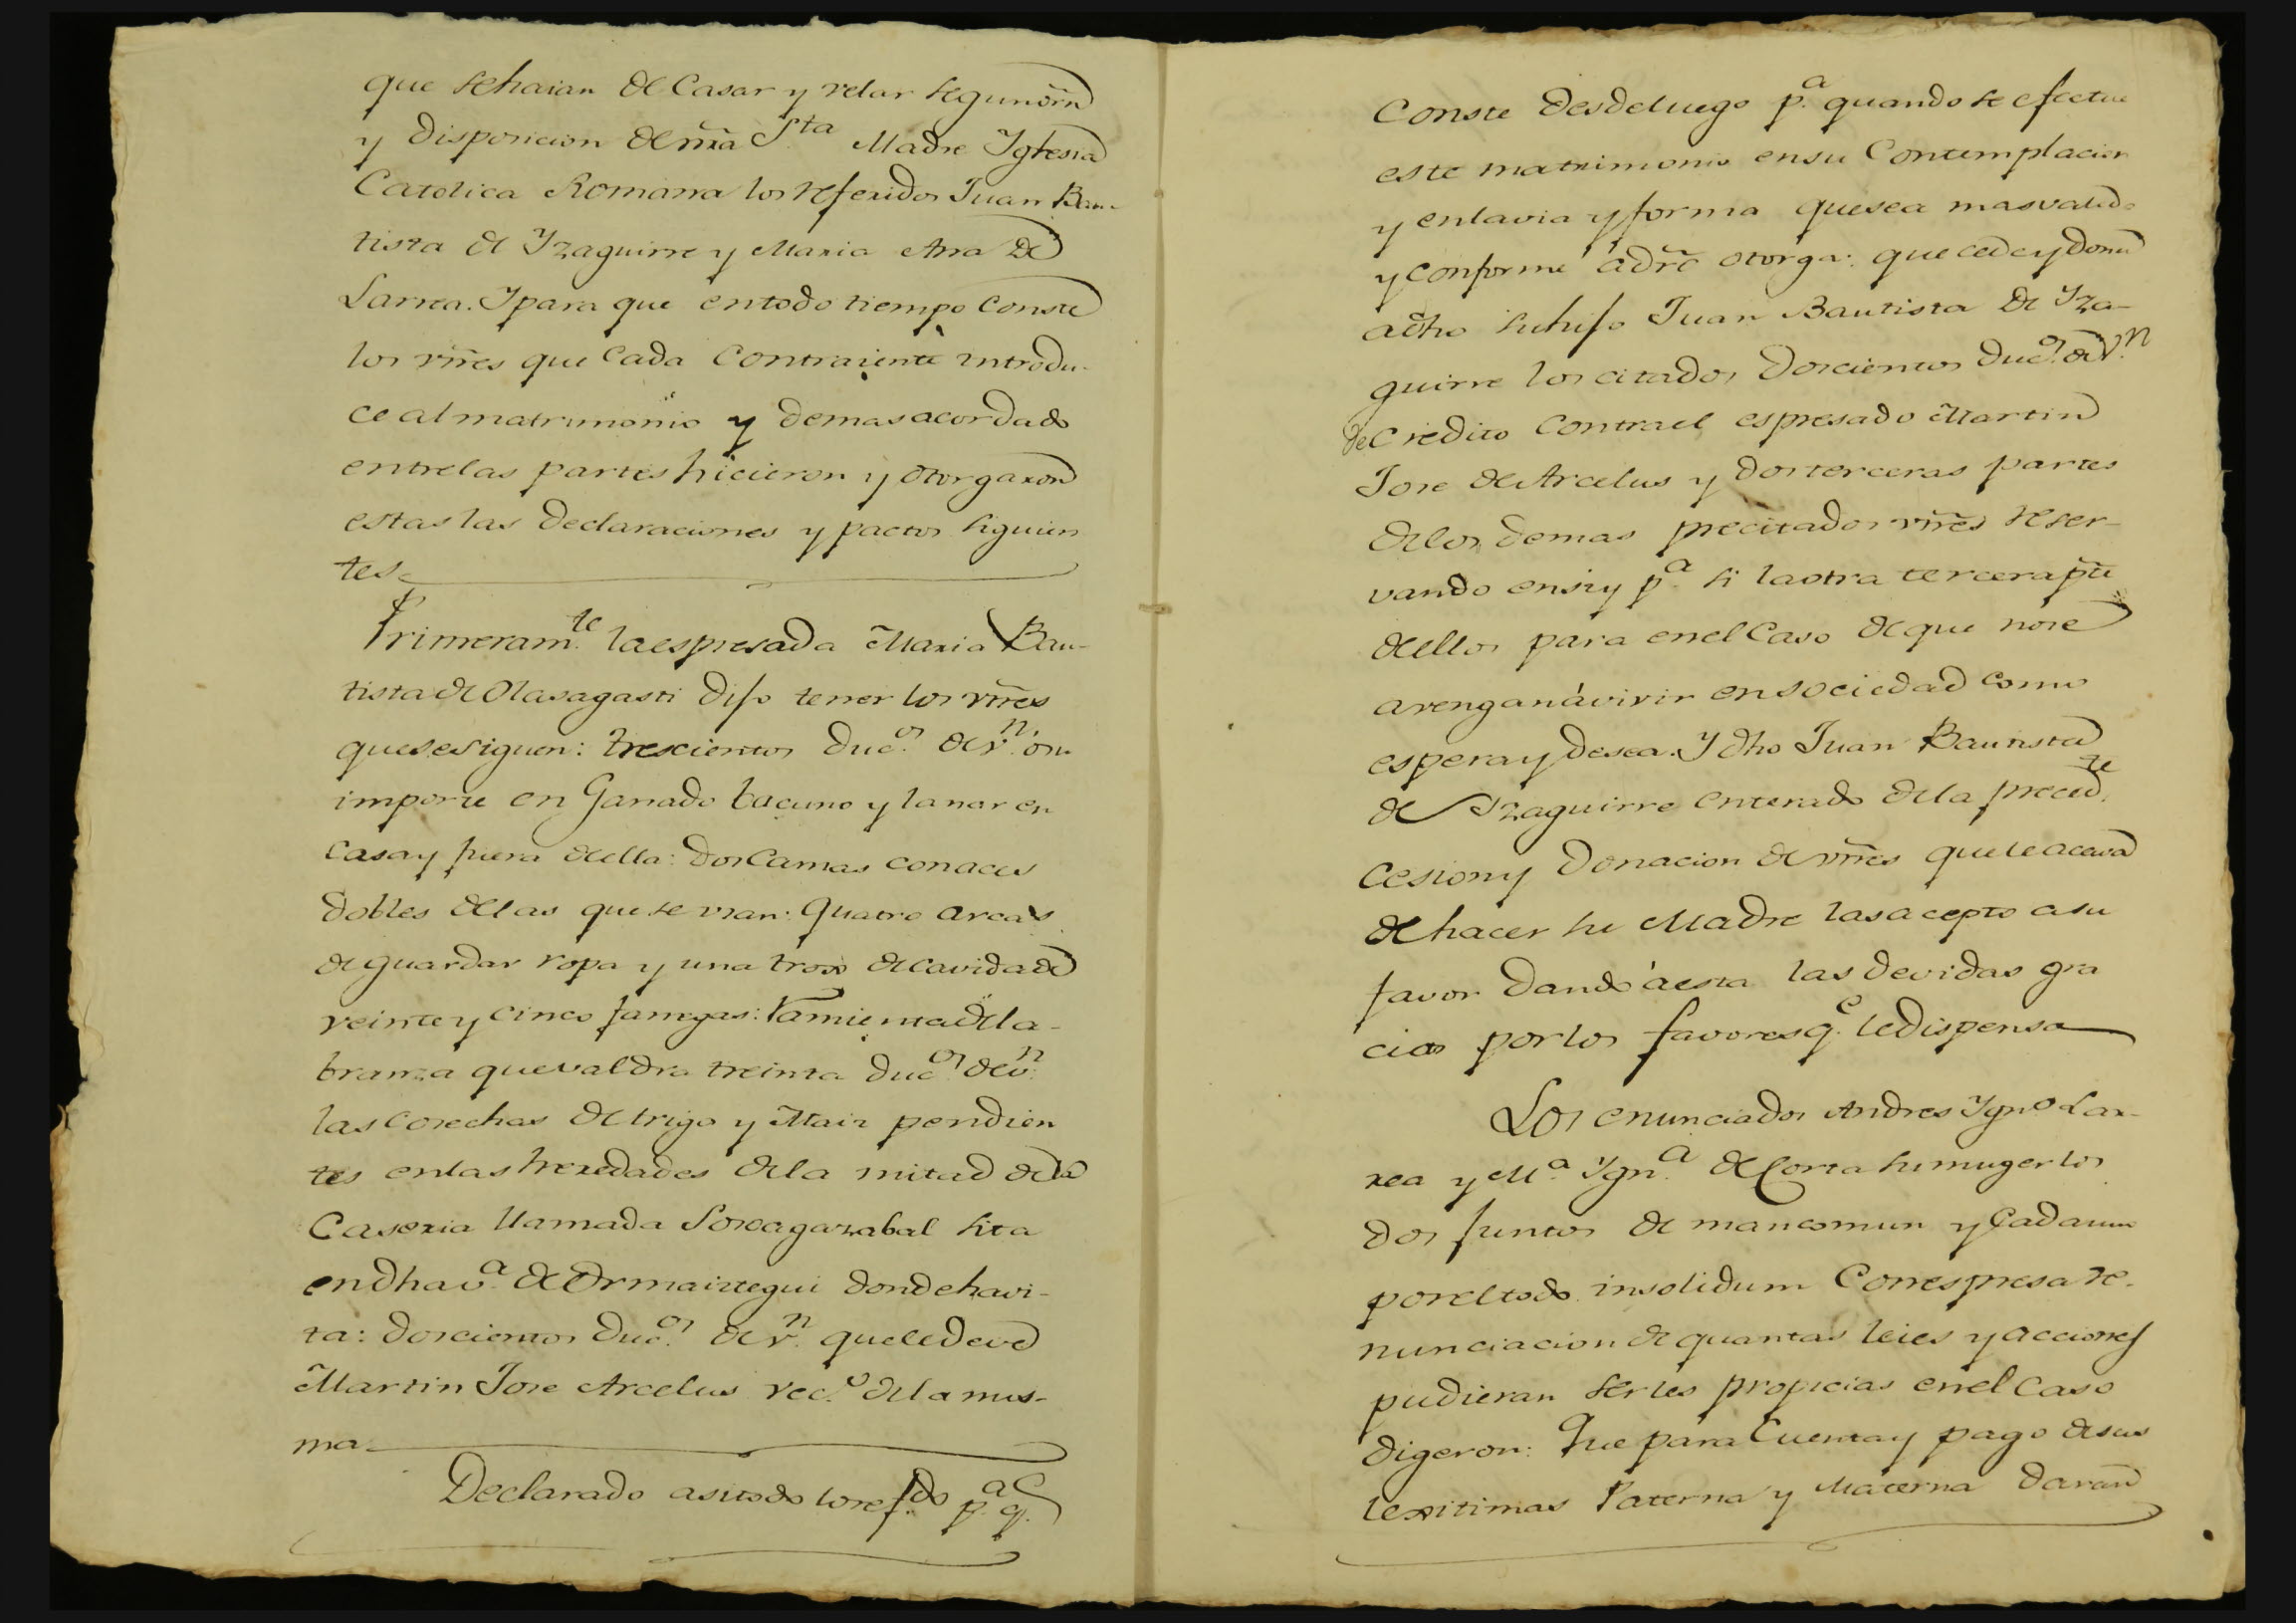 que sehaian de Casar y velar segun orñ
y disposicion de nr̃a Sta Madre Yglesia
Catolica Romana los referidos Juan Bau-
tista de Yzaguirre y Maria Ana de
Larrea. Y para que entodo tiempo conste
los vñes que Cada Contraiente introdu-
ce al matrimonio y demas acordado
entrelas partes hicieron y otorgaron
estas las declaraciones y pactos siguien
tes
Primeramte la espresada Maria Bau-
tista de Olasagasti dijo tener los vñes
quesesiguen: trescientos ducos de vn en
importe en Ganado bacuno y lanar en
casa y fuera deella: dos Camas con aces
dobles delas que se vsan: quatro arcas
de guardar ropa y una trox de cavidad de
veinte y cinco fanegas: ramienta de la-
branza que valdra treinta ducos de vn:
las cosechas de trigo y Maiz pendien
tes enlas heredades dela mitad de la
Caseria llamada Soroagarzabal sita
endha va de Ormaiztegui donde havi-
ta: doscientos ducos de vn que le deve
Martin Jose Arcelus veco dela mis-
ma
Declarado asi todo lo refdo pa q.
Conste desdeluego pa quando se efectue
este matrimonio ensu Contemplacion
y enlavia y forma quesea masvalida
y conforme á dr̃o otorga: que cede y dona
a dho su hijo Juan Bautista de Yza-
guirre los citados doscientos ducos de Vn
de Credito contrael espresado Martin
Jose de Arcelus y dos terceras partes
delos demas precitados vñes reser-
vando ensi y pa si la otra tercera pte
deellos para en el Caso de que nose
avengan á vivir en sociedad como
espera y desea. Y dho Juan Bautista
de Yzaguirre enterado dela precedte
Cesion y Donacion de vñes que le acava
de hacer su Madre las acepto a su
favor dando á esta las devidas gra
cias por los favores qe le dispensa
Los enunciados Andres Ygno Lar-
rea y Ma Ygna de Corta su muger los
dos juntos de mancomun y Cada uno
por el todo insolidum Con espresa re-
nunciacion de quantas leies y acciones
pudieran serles propicias en el Caso
digeron: Que para Cuenta y pago desus
lexitimas Paterna y Materna daran